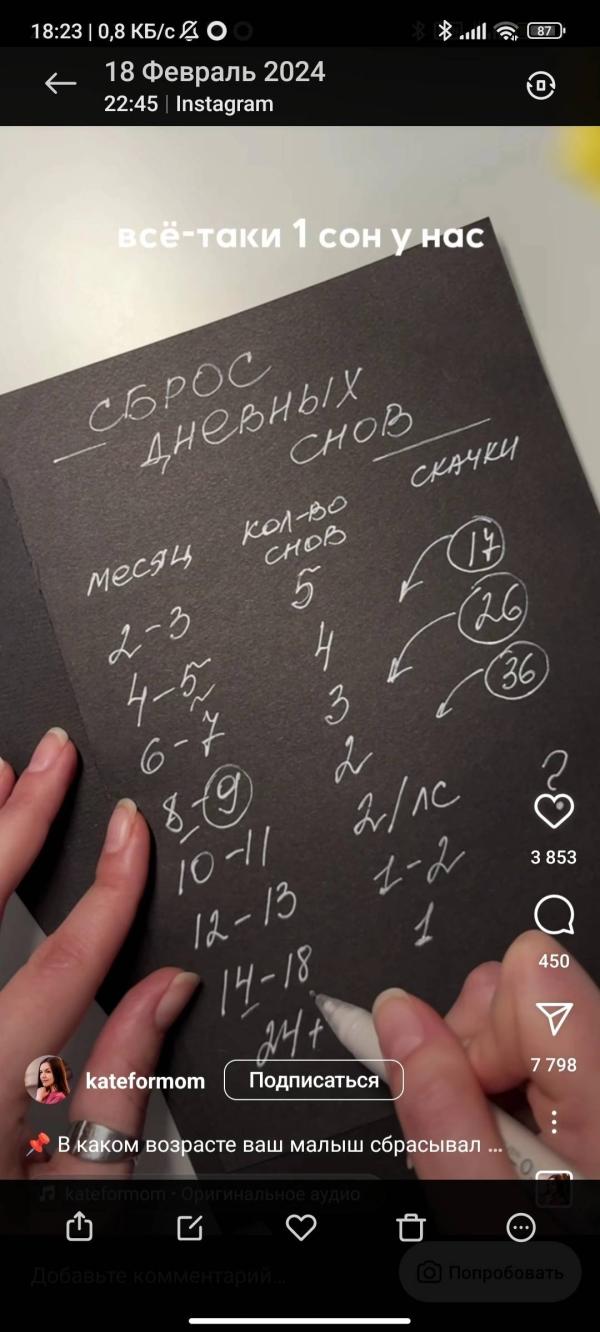 18:23 | 0,8 КБ/с
87
18 Февраль 2024
22:45 | Instagram
всё-таки 1 сон у нас
СБРОС
ДНЕВНЫХ
СНОВ
МЕСЯЦ КОЛ-ВО СНОВ СКАЧКИ
2-3 5 17
4-5 4 26
6-7 3 36
8-9 2
10-11 2/ЛС
12-13 1-2
14-18 1
24+
?
3 853
450
7 798
kateformom Подписаться
📌 В каком возрасте ваш малыш сбрасывал ...
kateformom • Оригинальное аудио
Добавьте комментарий...
Попробовать